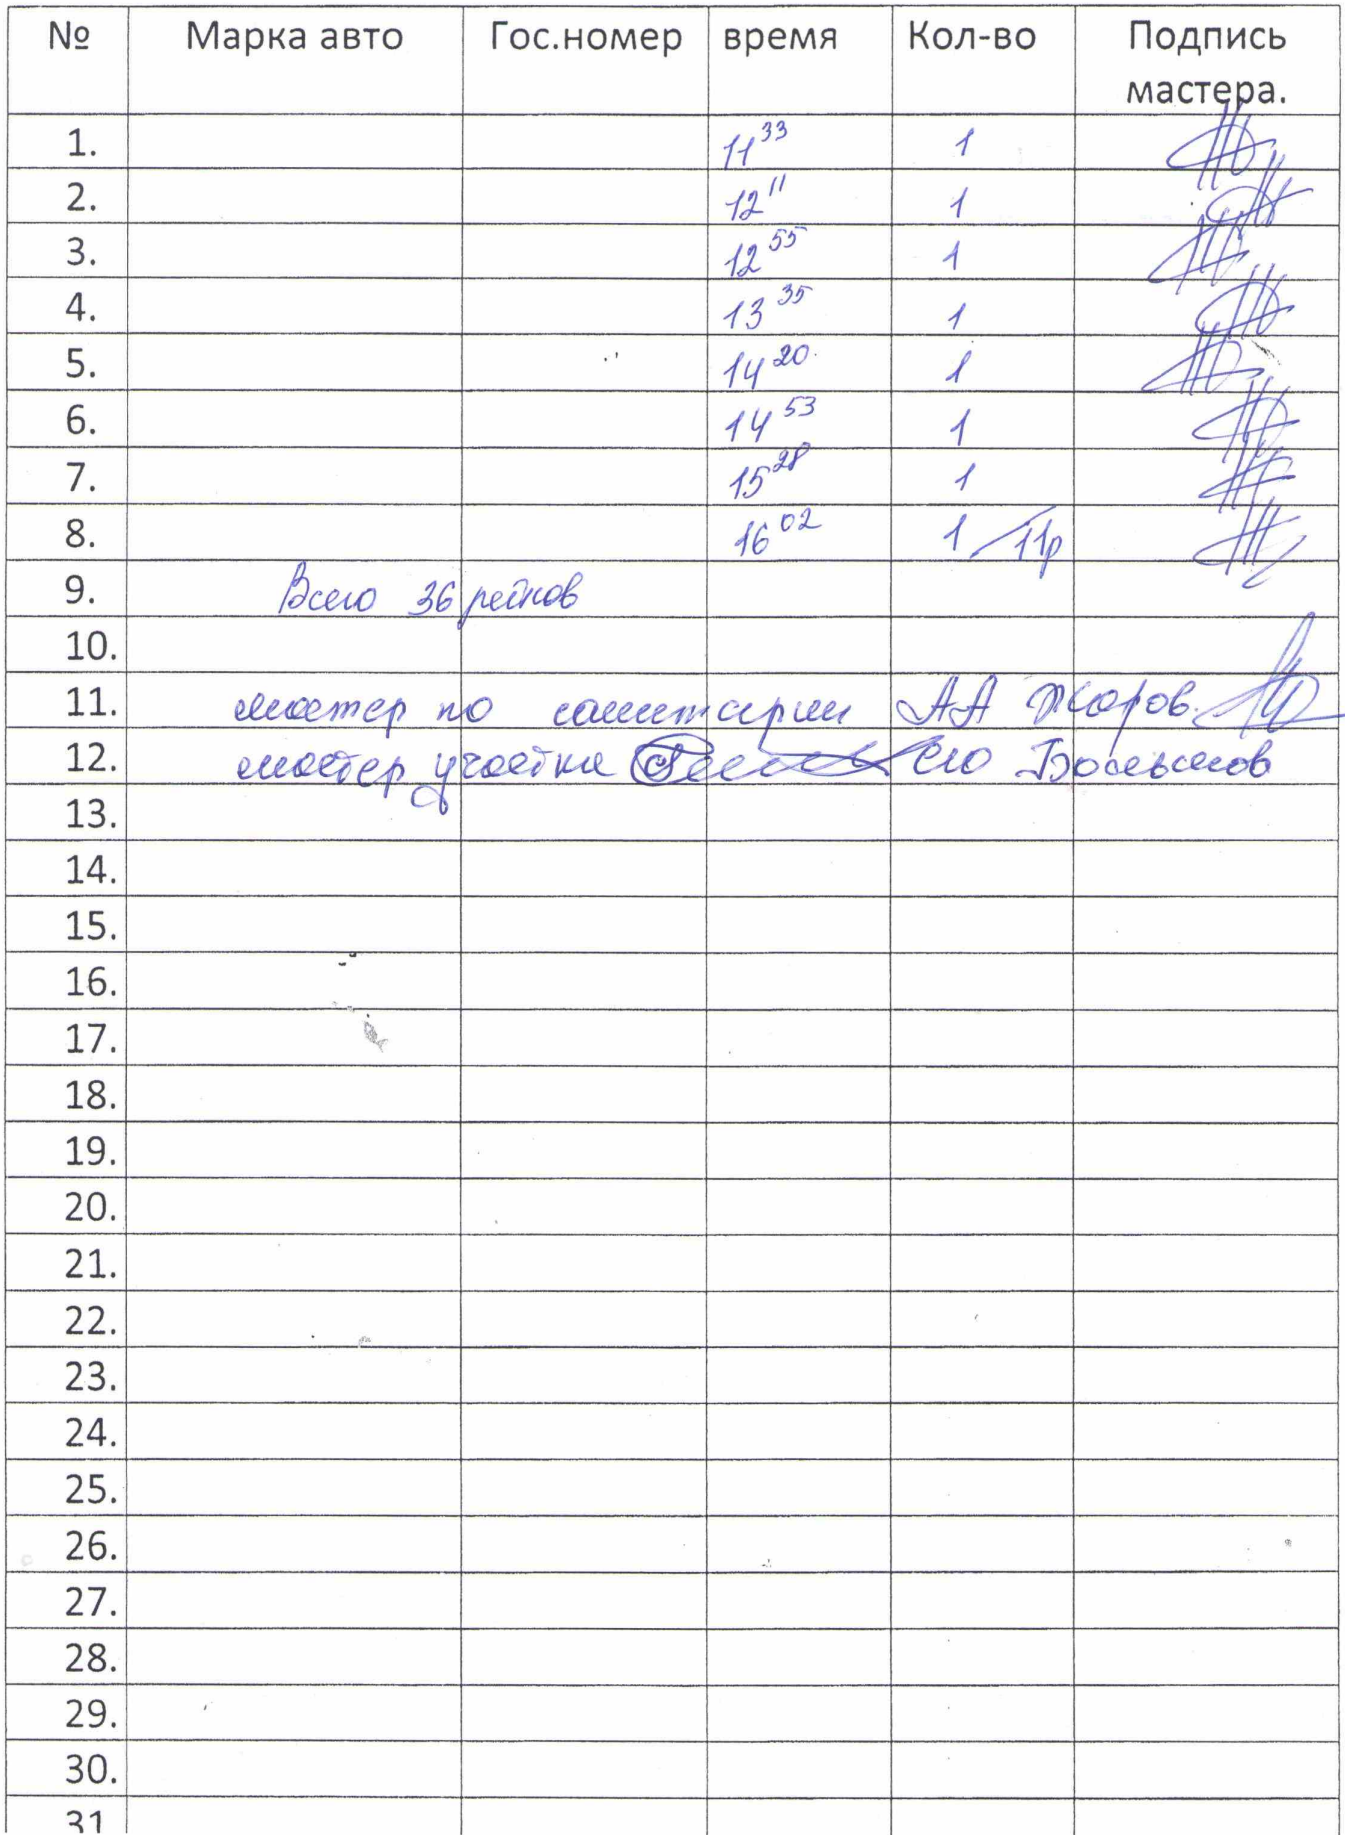 № Марка авто Гос.номер время Кол-во Подпись
мастера.
1. 11³³ 1
2. 12¹¹ 1
3. 12⁵⁵ 1
4. 13³⁵ 1
5. 14²⁰ 1
6. 14⁵³ 1
7. 15²⁸ 1
8. 16⁰² 1 /11р
9. Всего 36 рейсов
10.
11. мастер по санитарии АА Жаров
12. мастер участка СЮ Большов
13.
14.
15.
16.
17.
18.
19.
20.
21.
22.
23.
24.
25.
26.
27.
28.
29.
30.
31